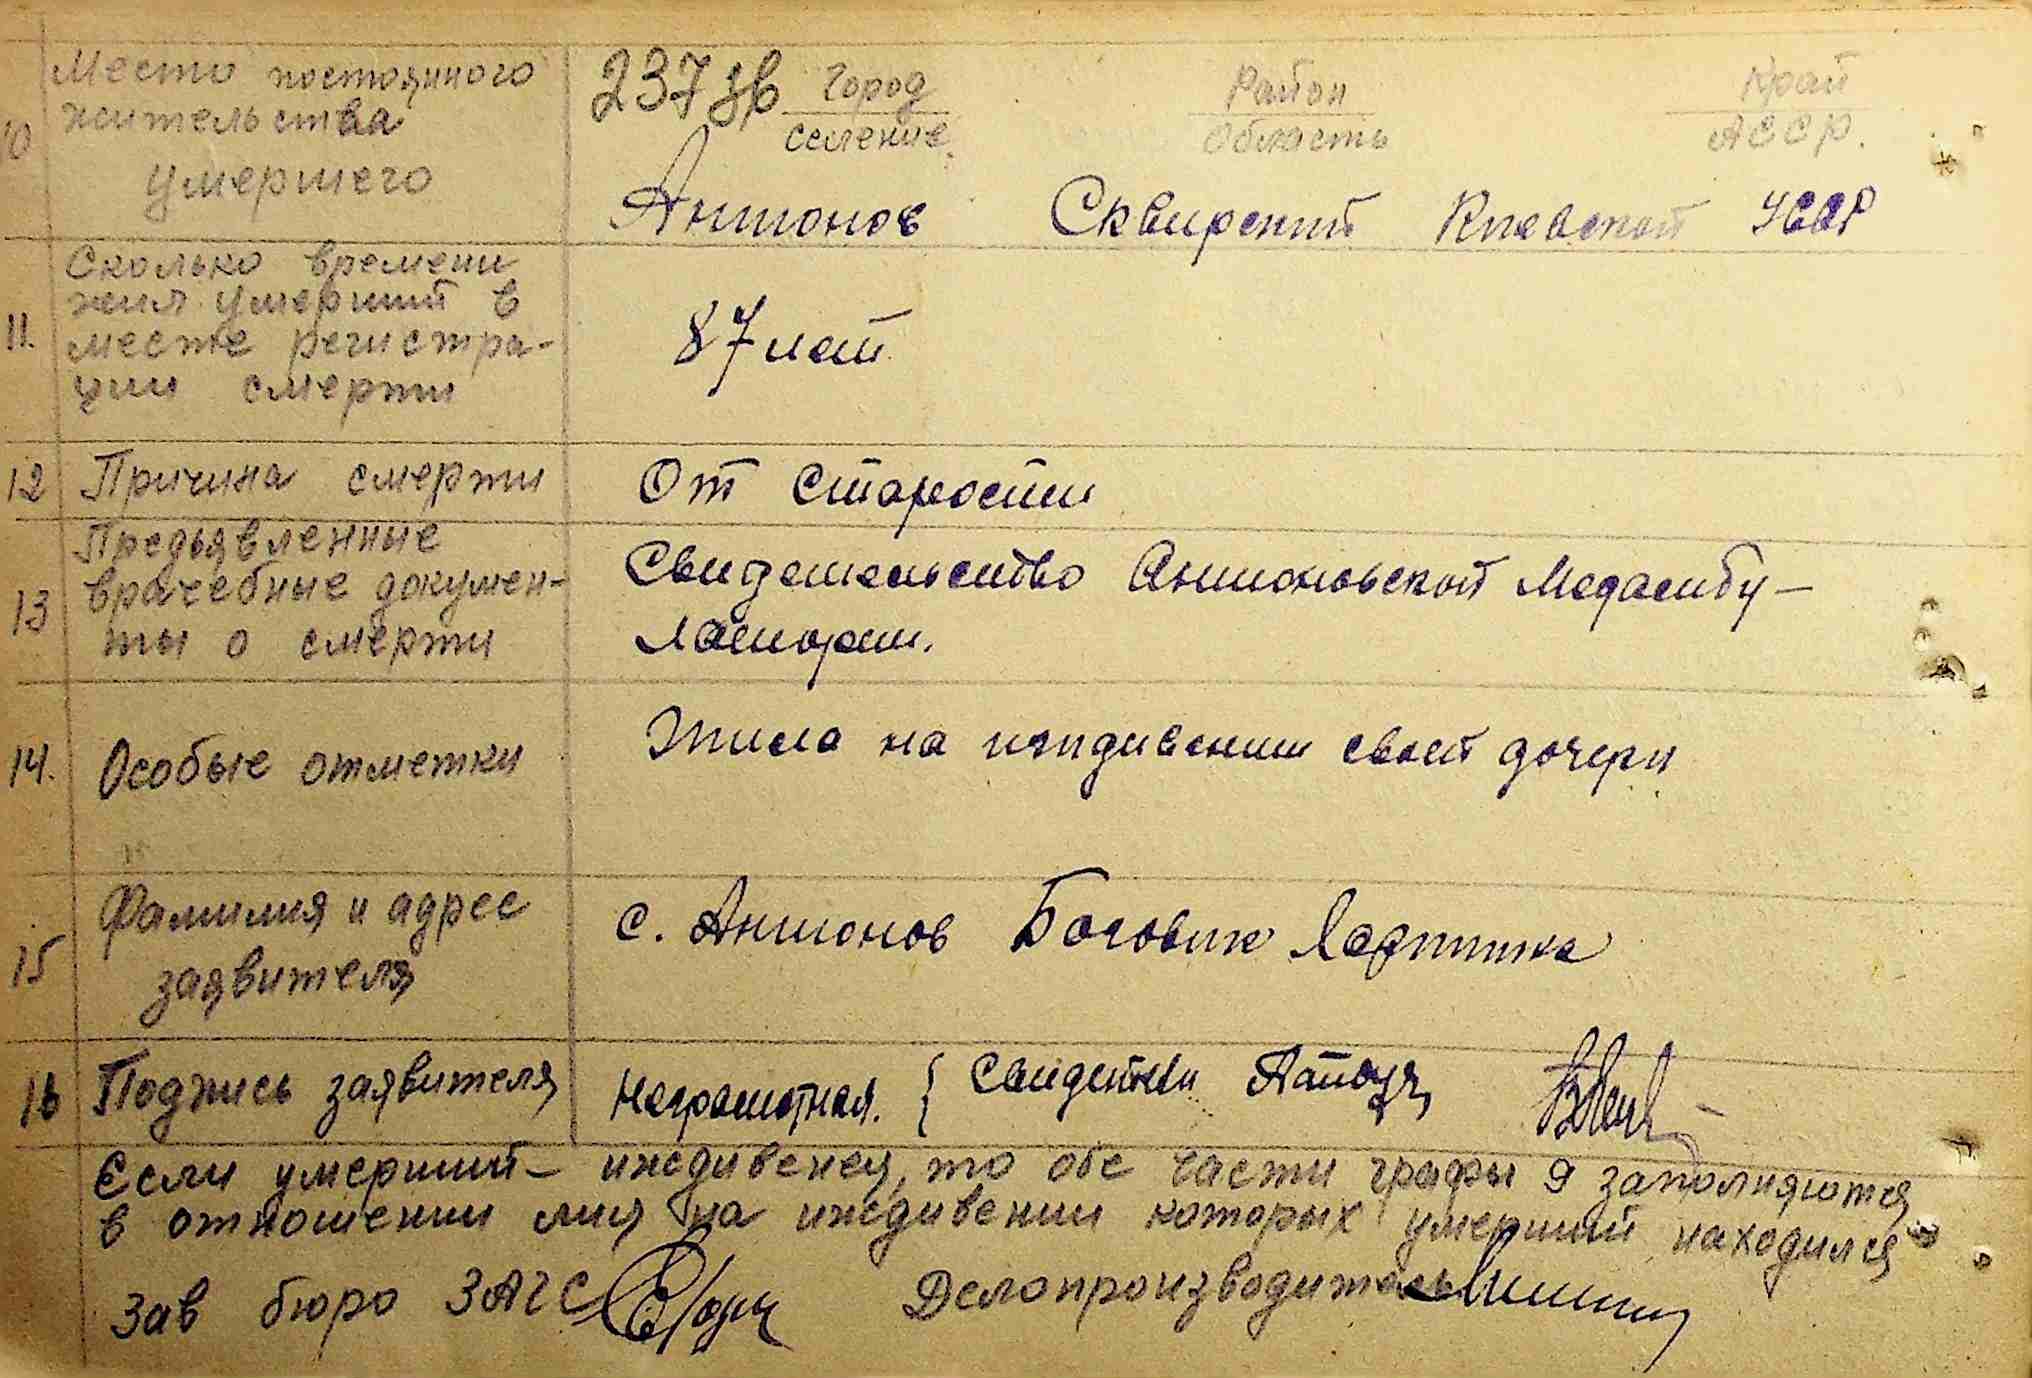 Место постоянного 237 зв Город Район Край
10 жительства селение Область АССР.
умершего Антонов Сквирский Киевской УССР
Сколько времени
жил умерший в
11. месте регистра- 87 лет
ции смерти
12 Причина смерти От старости
Предъявленные
врачебные докумен- Свидетельство Антоновской Медамбу-
13 ты о смерти латории.
14. Особые отметки Жила на иждивении своей дочери
Фамилия и адрес с. Антонов Боговик
15 заявителя
16 Подпись заявителя Неграмотная. { Свидетели
Если умерший - иждивенец, то обе части графы 9 заполняются
в отношении лиц на иждивении которых умерший находился
Зав бюро ЗАГС Делопроизводитель